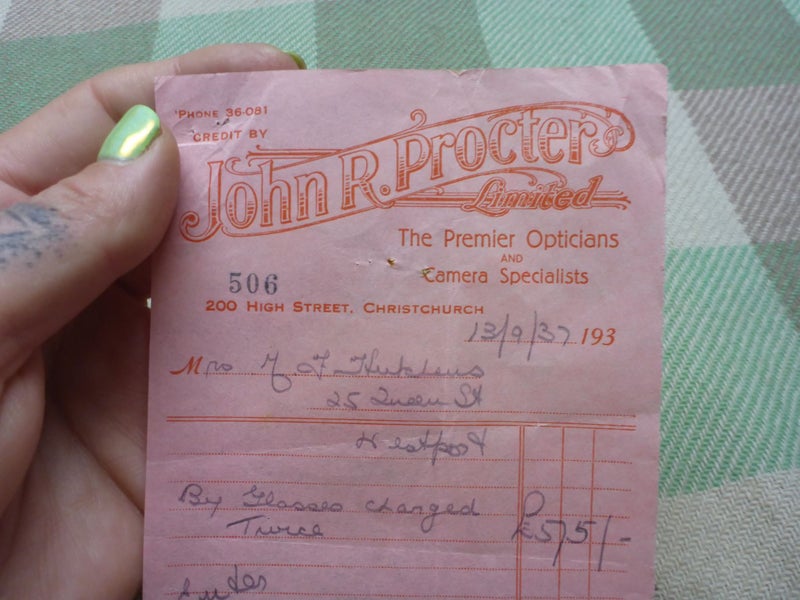 'PHONE 36-081
CREDIT BY
John R. Procter
Limited
The Premier Opticians
AND
Camera Specialists
506
200 HIGH STREET, CHRISTCHURCH
13/9/37 193
Mrs
25 Queen St
Westport
By Glasses charged
Twice £5/5/-